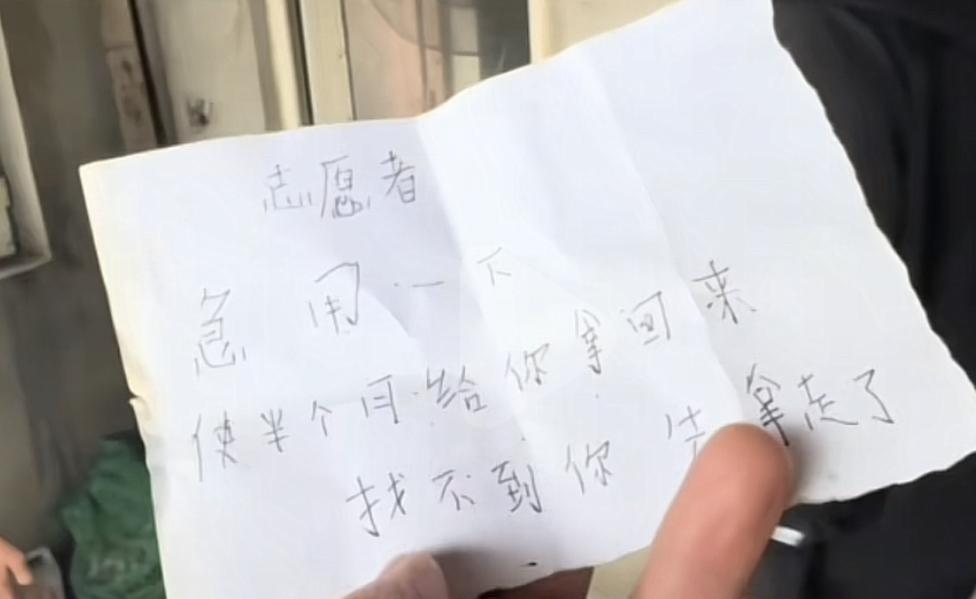 志愿者
急用一下
使半个月给你拿回来
找不到你先拿走了